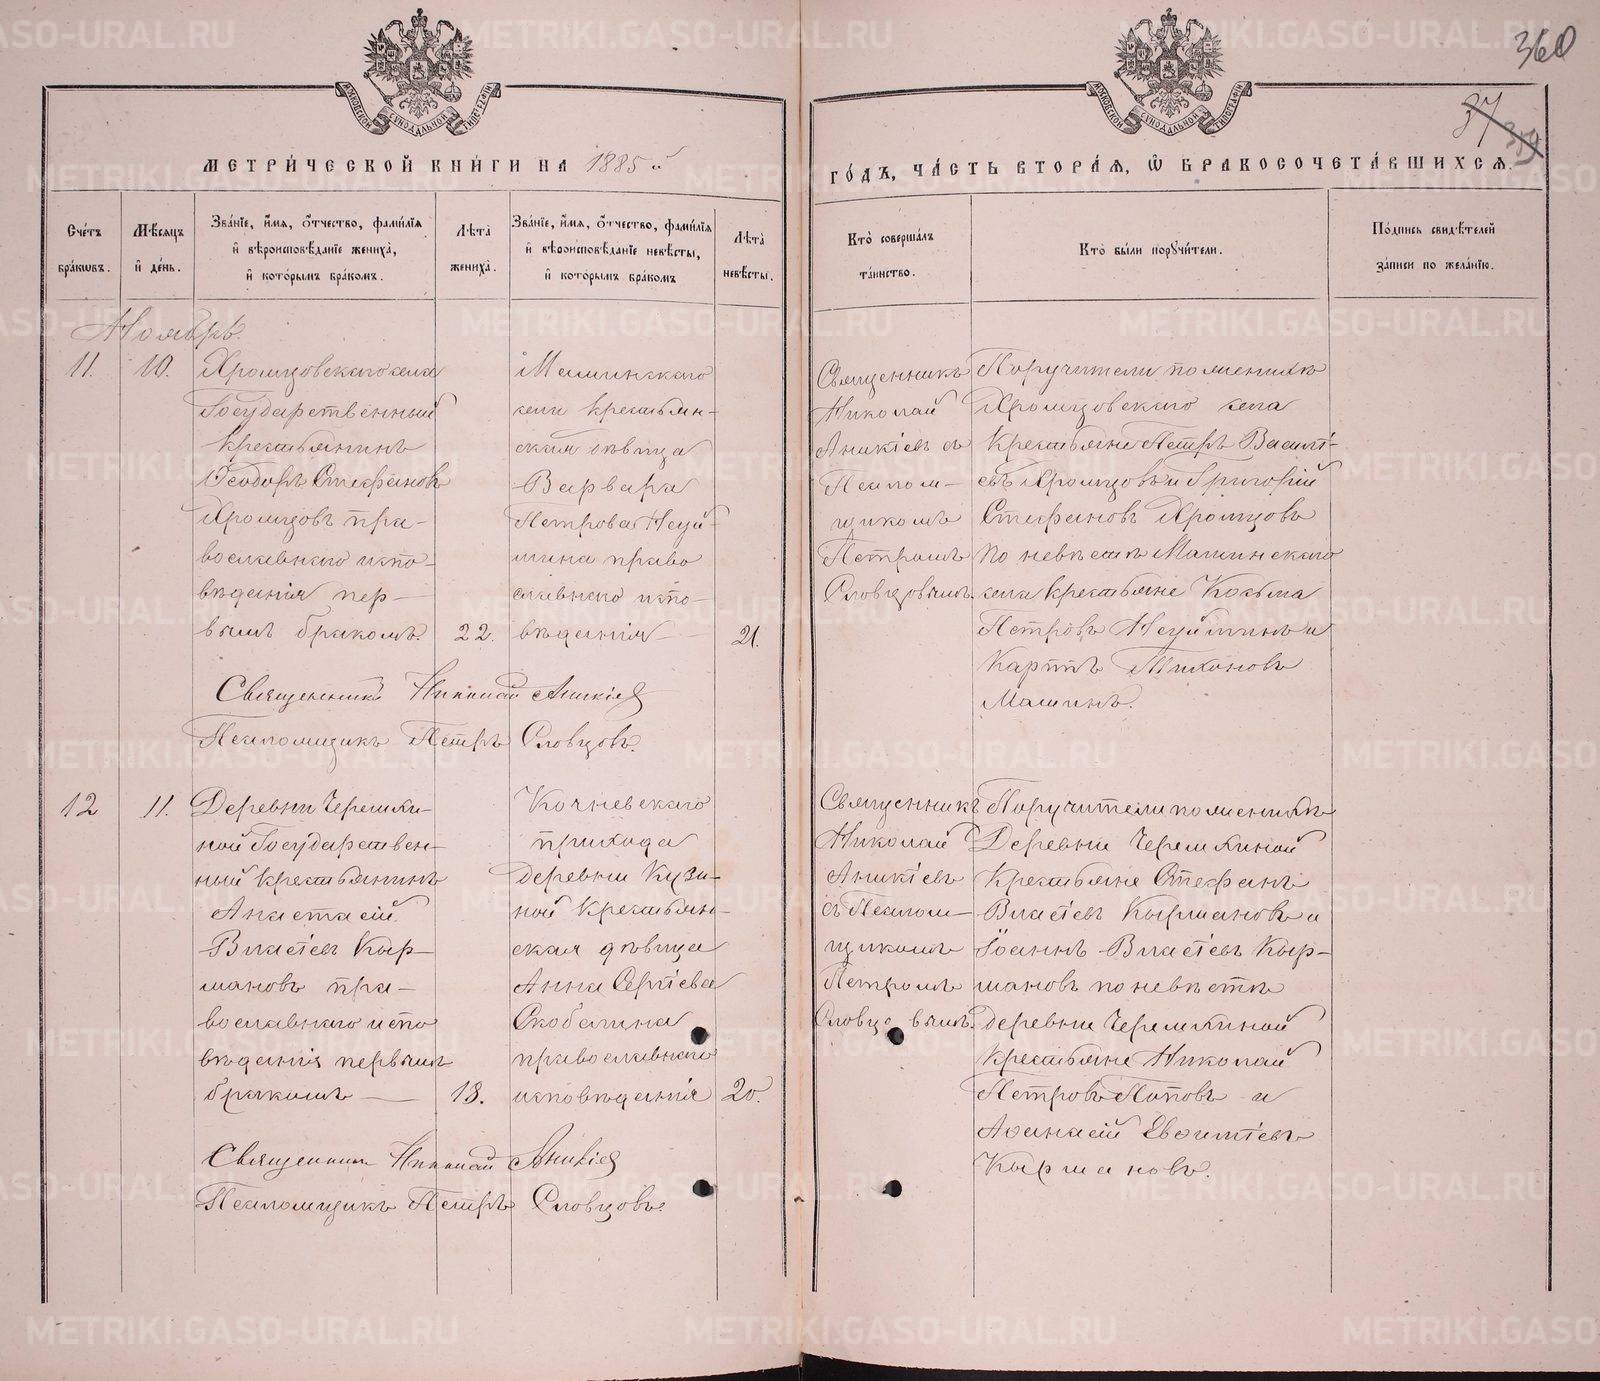 360
37
359
МЕТРИЧЕСКОЙ КНИГИ НА 1885й
ГОДЪ, ЧАСТЬ ВТОРАЯ, Ѡ БРАКОСОЧЕТАВШИХСЯ.
Счетъ браковъ.
Мѣсяцъ и день.
Званіе, имя, отчество, фамилія и вѣроисповѣданіе жениха, и которымъ бракомъ.
Лѣта жениха.
Званіе, имя, отчество, фамилія и вѣроисповѣданіе невѣсты, и которымъ бракомъ
Лѣта невѣсты.
Кто совершалъ таинство.
Кто были поручители.
Подпись свидѣтелей записи по желанію.
Ноябрь.
11.
10.
Хромцовскаго села
Государственный
крестьянинъ
Ѳеодоръ Стефановъ
Хромцовъ пра-
вославнаго испо-
вѣданія пер-
вымъ бракомъ.
22.
Маминскаго
села крестьян-
ская дѣвица
Варвара
Петрова Неуй-
мина право
славнаго испо-
вѣданія
21.
Священникъ
Николай
Аникіевъ съ
Псалом-
щикомъ
Петромъ
Словцовымъ.
Поручители по женихѣ
Хромцовскаго села
Крестьяне Петръ Василі-
евъ Хромцовъ и Григорій
Стефановъ Хромцовъ
по невѣстѣ Маминскаго
села крестьяне Козьма
Петровъ Неуйминъ и
Карпъ Тихоновъ
Маминъ.
Священникъ Николай Аникіевъ
Псаломщикъ Петръ Словцовъ.
12
11.
Деревни Черемхи-
ной Государствен-
ный крестьянинъ
Анастасій
Власіевъ Кыр-
мановъ пра-
вославнаго испо
вѣданія первымъ
бракомъ
18.
Кочневскаго
прихода
деревни Кузи-
ной крестьян-
ская дѣвица
Анна Сергіева
Скобелина
православнаго
исповѣданія
20.
Священникъ
Николай
Аникіевъ
съ Псалом-
щикомъ
Петромъ
Словцовымъ.
Поручители по женихѣ
Деревни Черемхиной
Крестьяне Стефанъ
Власіевъ Кырмановъ и
Іоаннъ Власіевъ Кыр-
мановъ по невѣстѣ
деревни Черемхиной
крестьяне Николай
Петровъ Поповъ и
Аѳанасій Евѳиміевъ
Кырмановъ.
Священникъ Николай Аникіевъ
Псаломщикъ Петръ Словцовъ.
METRIKI.GASO-URAL.RU